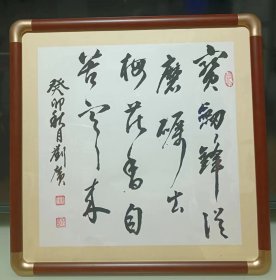 寶劍鋒從
磨礪出
梅花香自
苦寒來
癸卯秋月劉廣